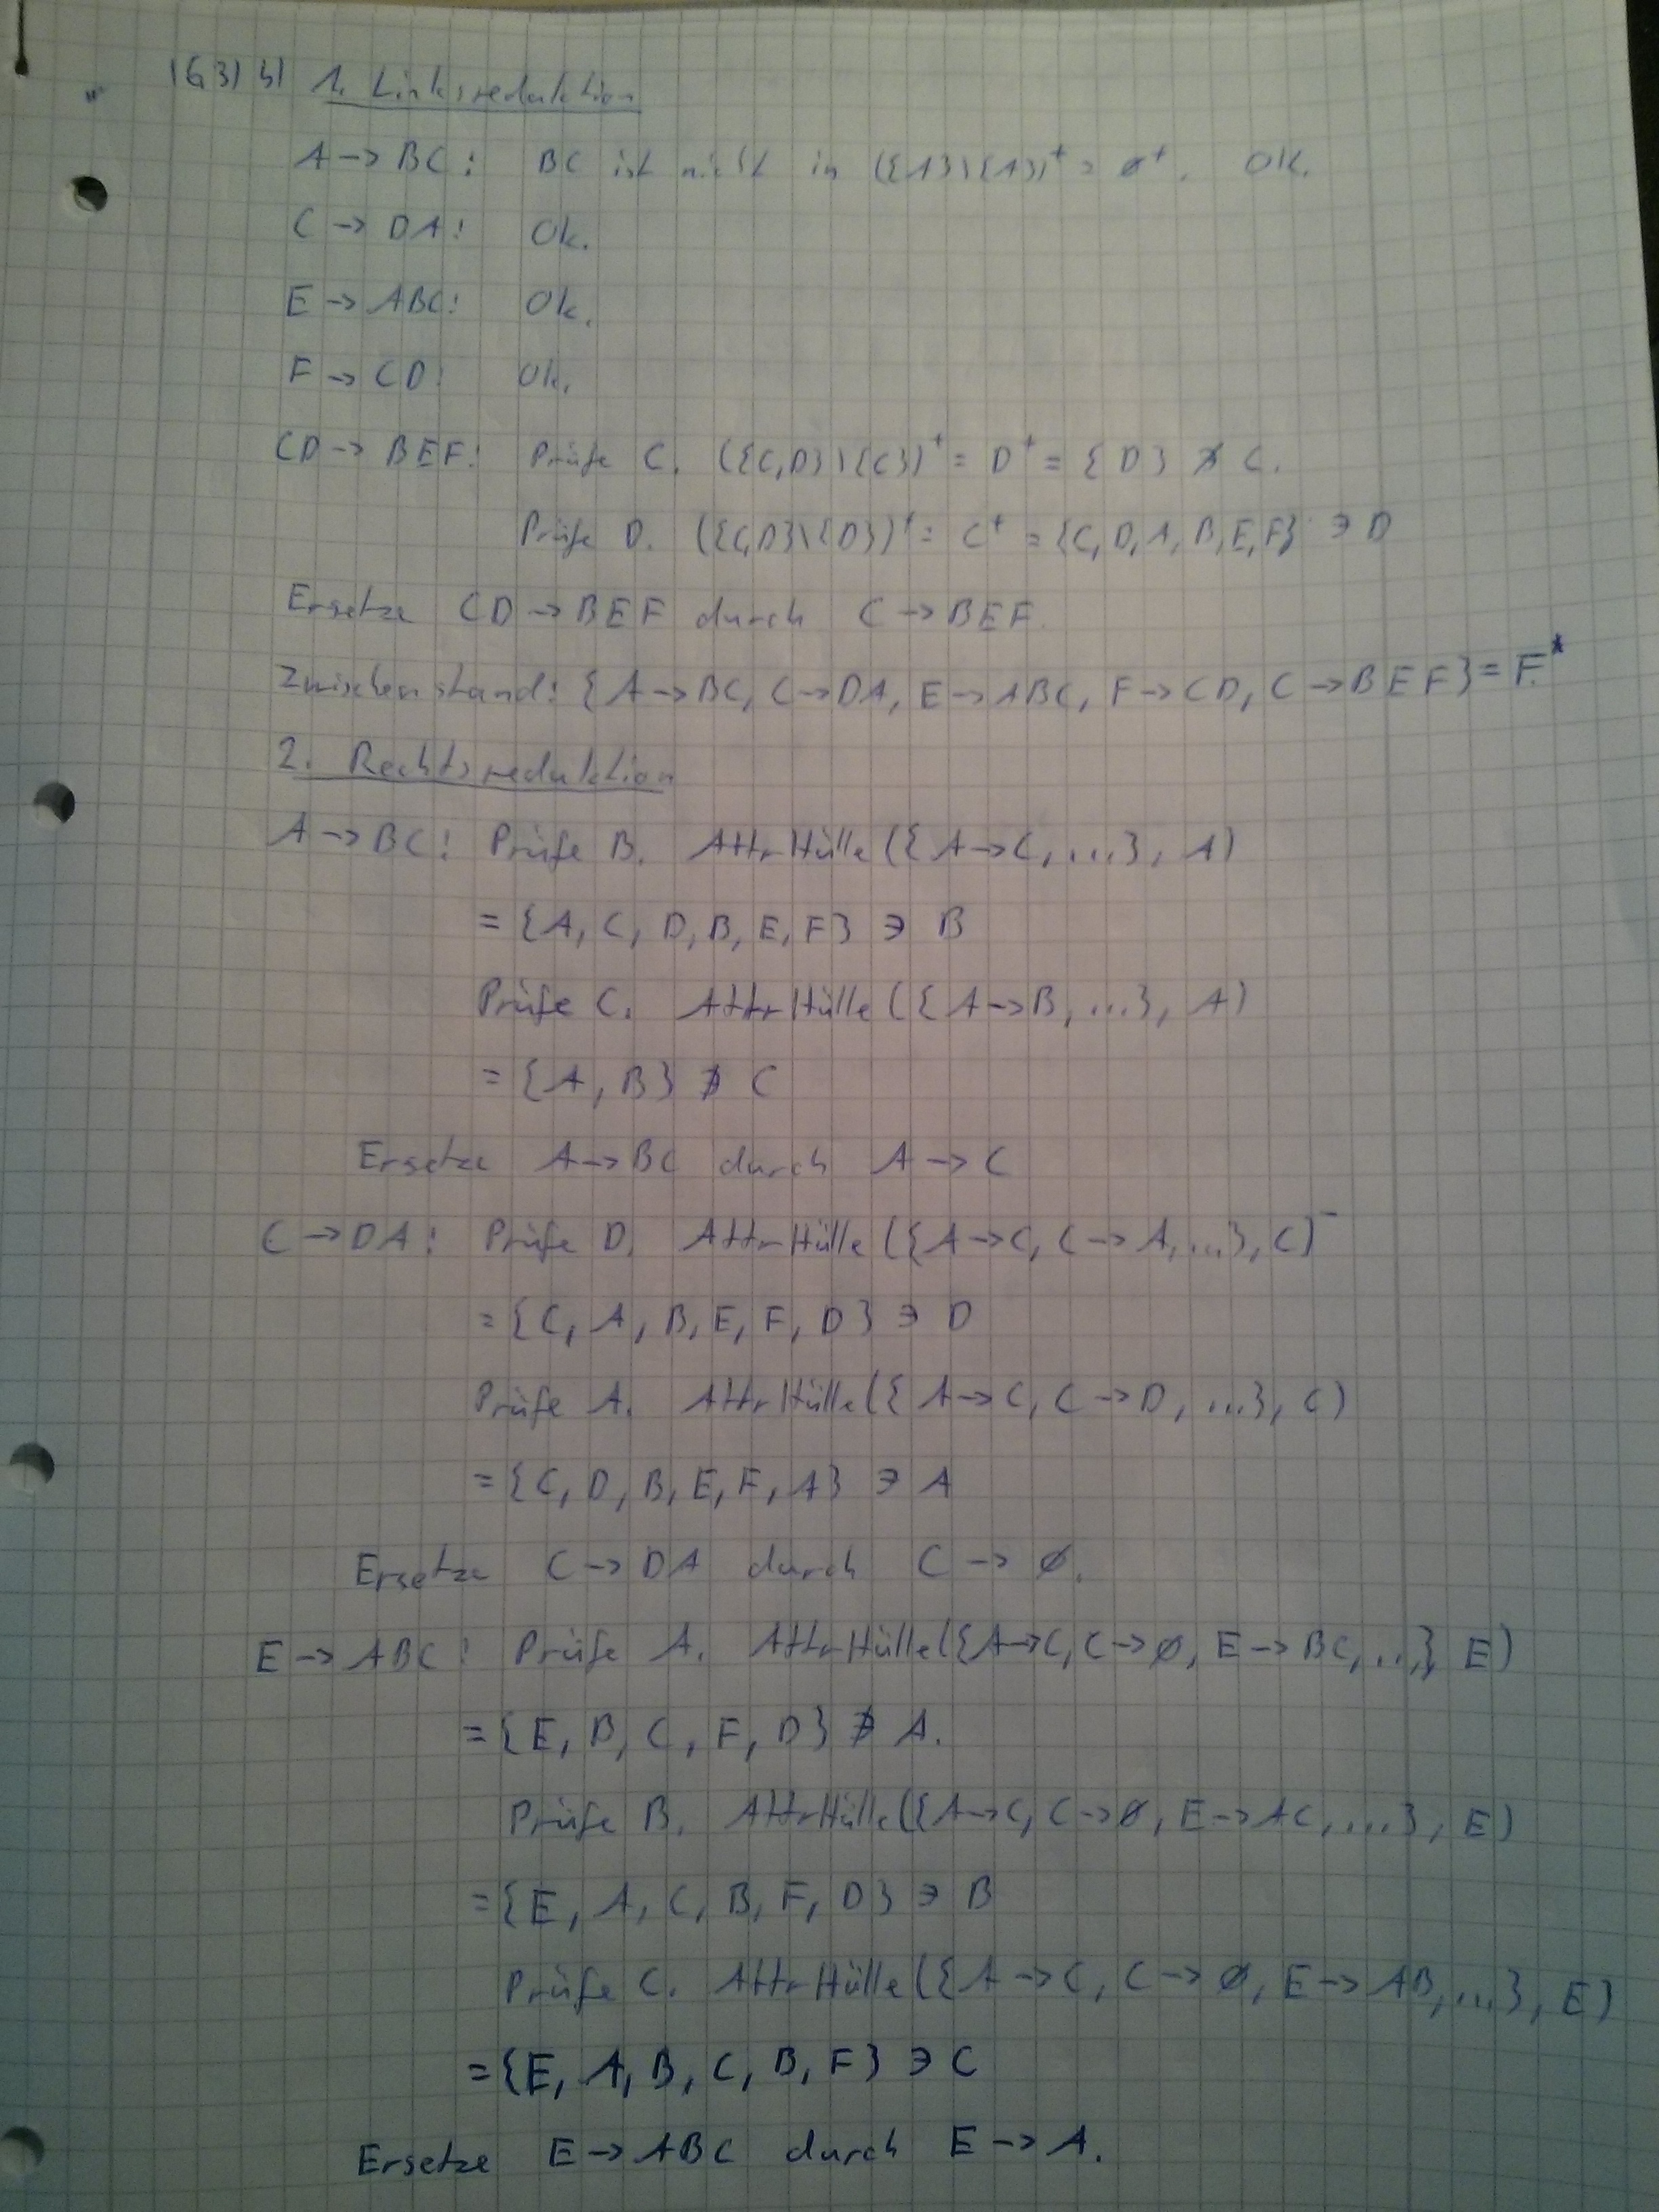 (G3) b) 1. Linksreduktion
A → BC: BC ist nicht in ({A}\{A})⁺ = ∅⁺. Ok.
C → DA: Ok.
E → ABC: Ok.
F → CD: Ok.
CD → BEF: Prüfe C. ({C,D}\{C})⁺ = D⁺ = {D} ∌ C.
Prüfe D. ({C,D}\{D})⁺ = C⁺ = {C, D, A, B, E, F} ∋ D
Ersetze CD → BEF durch C → BEF.
Zwischenstand: {A → BC, C → DA, E → ABC, F → CD, C → BEF} = F*
2. Rechtsreduktion
A → BC: Prüfe B. AttrHülle({A → C, ...}, A)
= {A, C, D, B, E, F} ∋ B
Prüfe C. AttrHülle({A → B, ...}, A)
= {A, B} ∌ C
Ersetze A → BC durch A → C
C → DA: Prüfe D. AttrHülle({A → C, C → A, ...}, C)
= {C, A, B, E, F, D} ∋ D
Prüfe A. AttrHülle({A → C, C → D, ...}, C)
= {C, D, B, E, F, A} ∋ A
Ersetze C → DA durch C → ∅.
E → ABC: Prüfe A. AttrHülle({A → C, C → ∅, E → BC, ...} E)
= {E, B, C, F, D} ∌ A.
Prüfe B. AttrHülle({A → C, C → ∅, E → AC, ...}, E)
= {E, A, C, B, F, D} ∋ B
Prüfe C. AttrHülle({A → C, C → ∅, E → AB, ...}, E)
= {E, A, B, C, B, F} ∋ C
Ersetze E → ABC durch E → A.